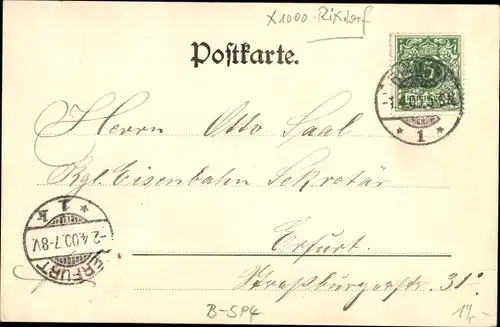 X1000-Rixdorf
Postkarte.
5
* 1 *
Herrn Otto Saal
Kgl. Eisenbahn Sekretär
Erfurt.
Straßburgerstr. 31.
ERFURT
-2.4.00.7-8V.
* 1 k
B-SP4
14,-